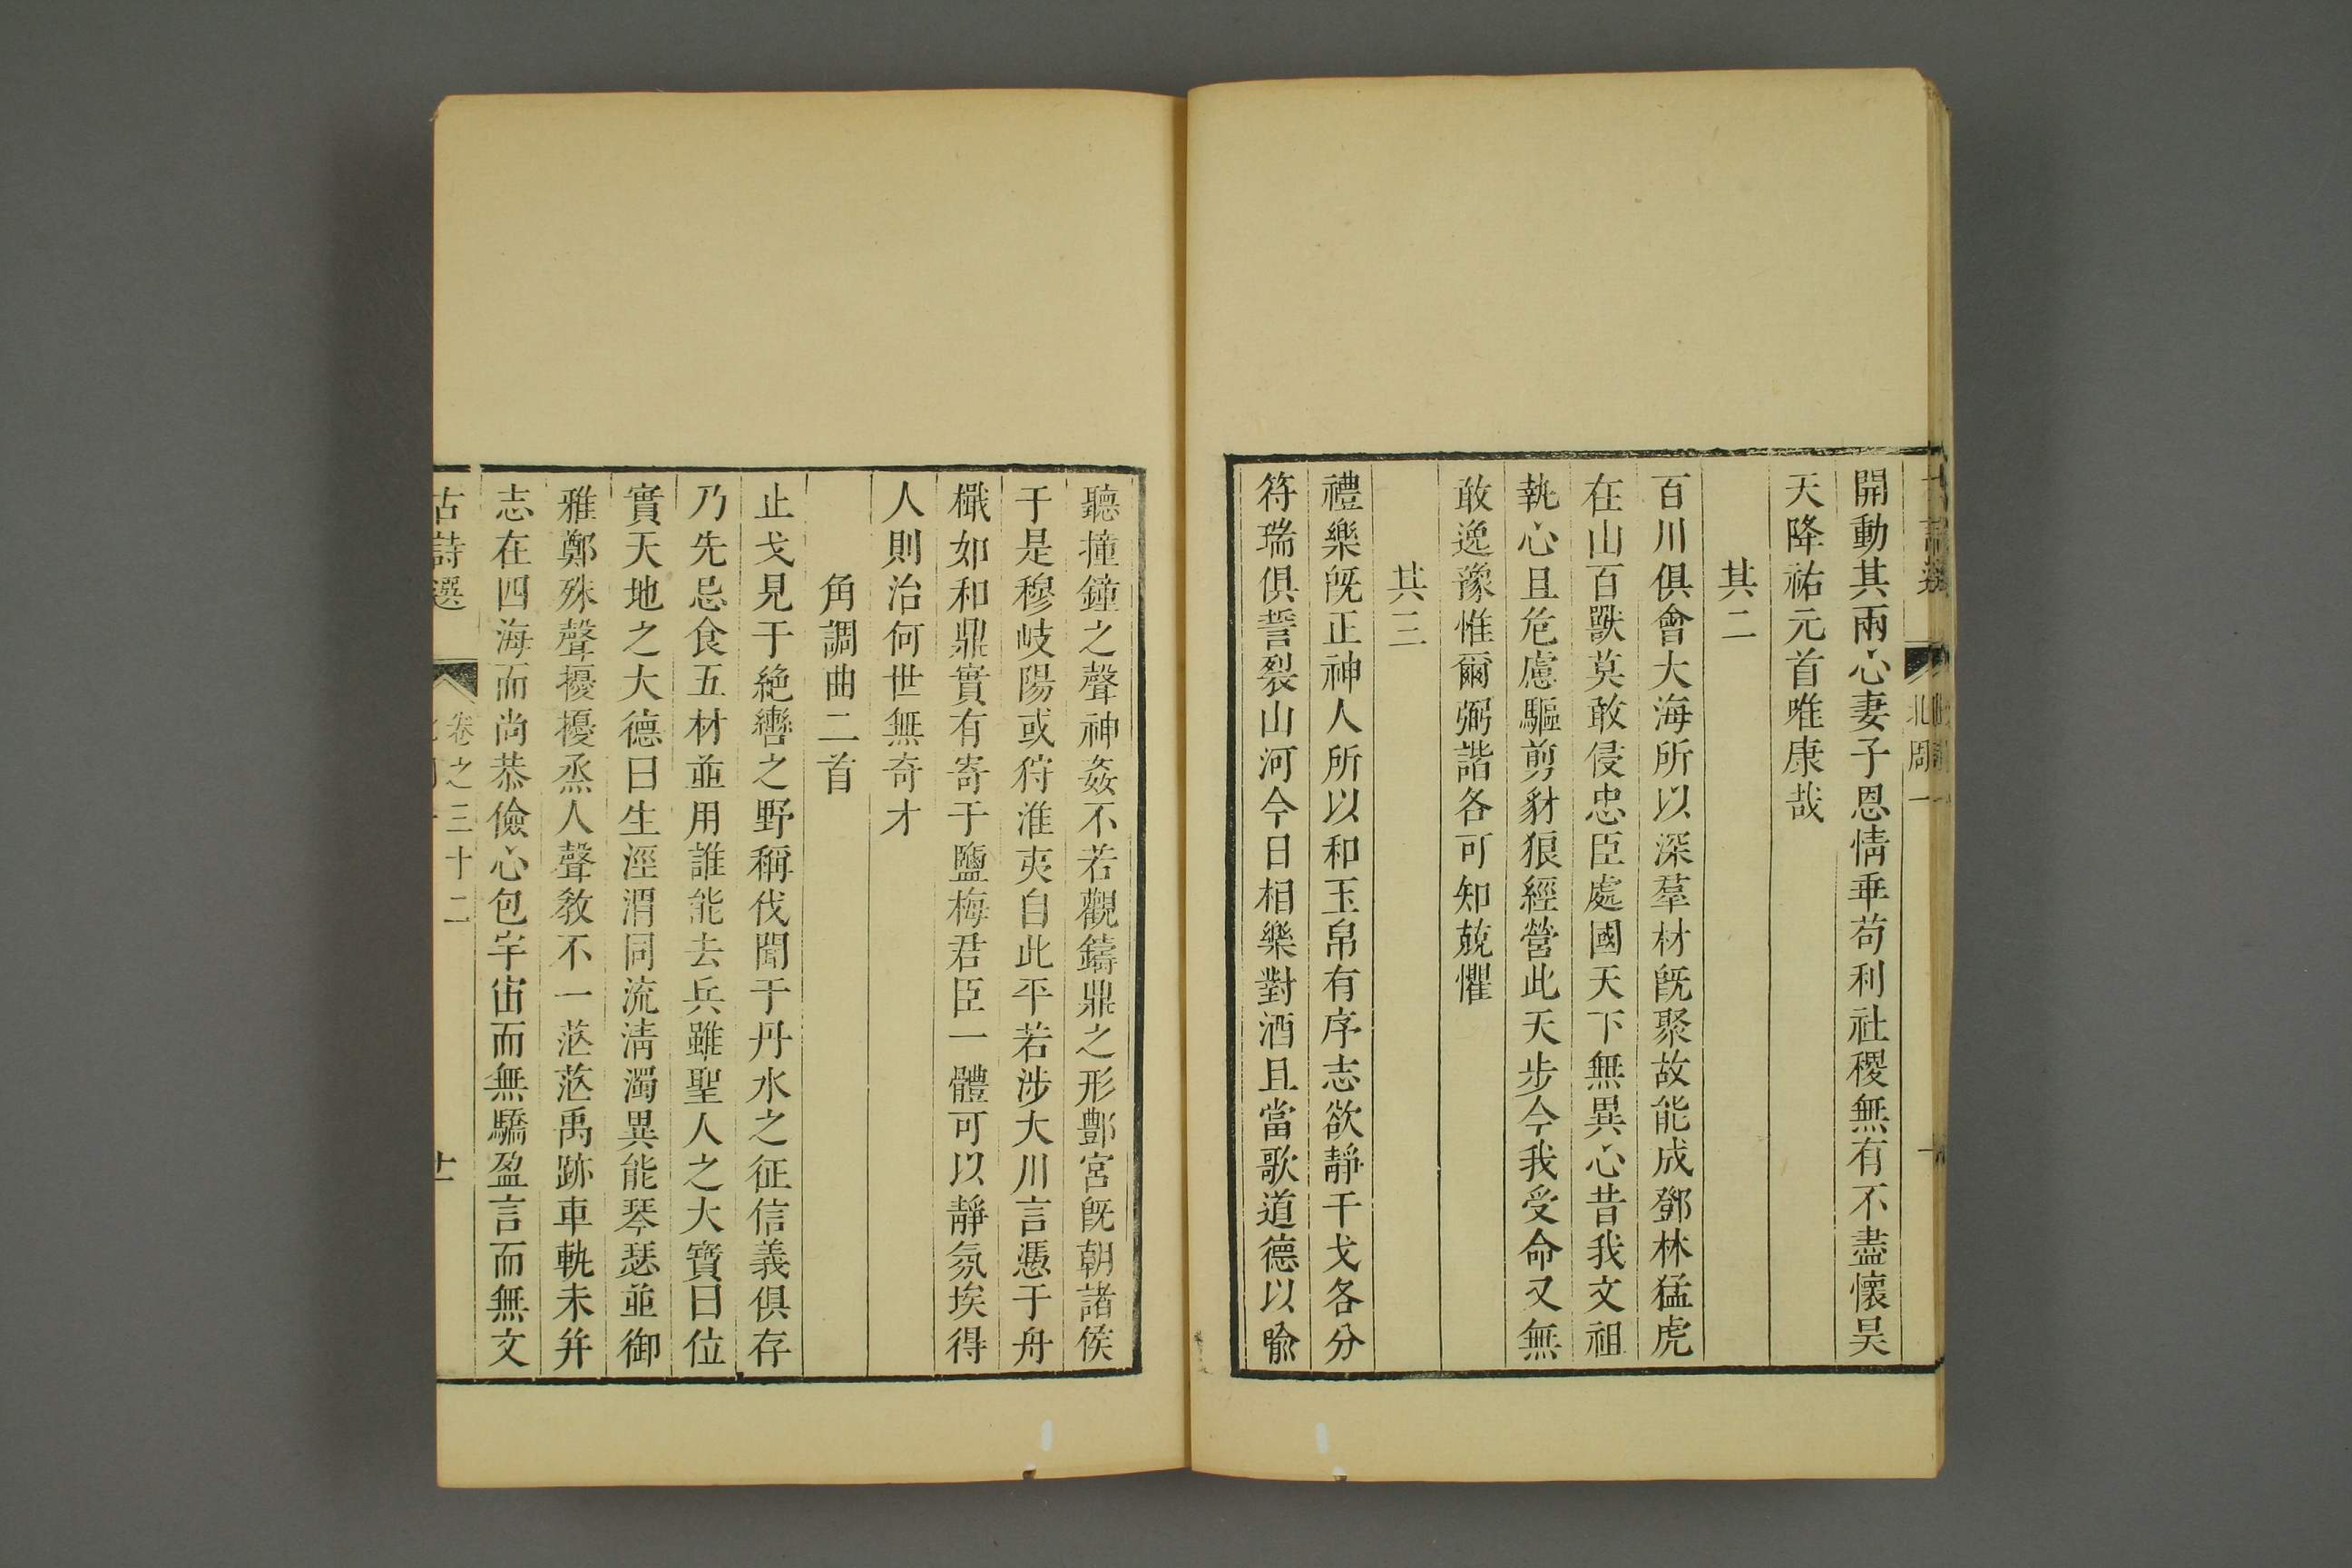 開動其兩心妻子恩情乖苟利社稷無有不盡懷昊
天降祐元首唯康哉
其二
百川俱會大海所以深羣材旣聚故能成鄧林猛虎
在山百獸莫敢侵忠臣處國天下無異心昔我文祖
執心且危慮驅剪豺狼經營此天步今我受命又無
敢逸豫惟爾弼諧各可知兢懼
其三
禮樂旣正神人所以和玉帛有序志欲靜干戈各分
符瑞俱誓裂山河今日相樂對酒且當歌道德以喻
聽撞鐘之聲神姦不若觀鑄鼎之形酆宮旣朝諸侯
于是穆岐陽或狩淮夷自此平若涉大川言憑于舟
檝如和鼎實有寄于鹽梅君臣一體可以靜氛埃得
人則治何世無奇才
角調曲二首
止戈見于絶轡之野稱伐聞于丹水之征信義俱存
乃先忌食五材並用誰能去兵雖聖人之大寶曰位
實天地之大德曰生涇渭同流清濁異能琴瑟並御
雅鄭殊聲擾擾烝人聲教不一茫茫禹跡車軌未并
志在四海而尚恭儉心包宇宙而無驕盈言而無文
古詩選 卷之三十二
北周一